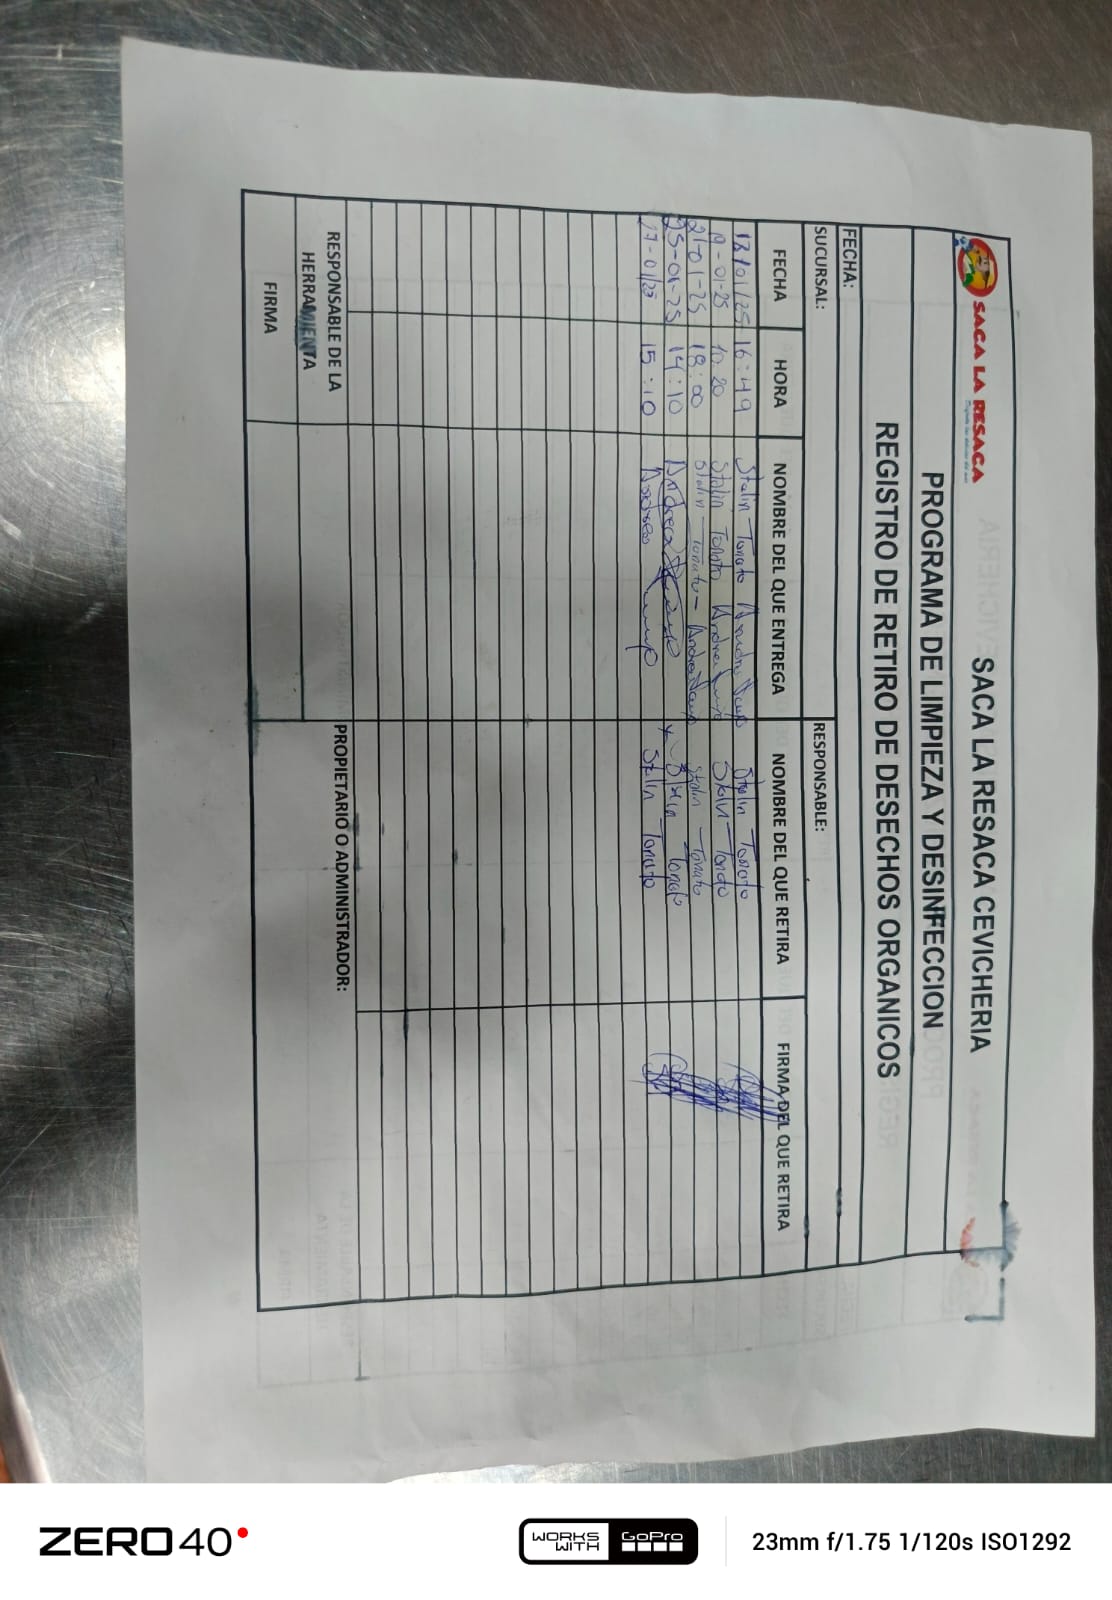 SACA LA RESACA
SACA LA RESACA CEVICHERIA
PROGRAMA DE LIMPIEZA Y DESINFECCION
REGISTRO DE RETIRO DE DESECHOS ORGANICOS
FECHA:
SUCURSAL: RESPONSABLE:
FECHA HORA NOMBRE DEL QUE ENTREGA NOMBRE DEL QUE RETIRA FIRMA DEL QUE RETIRA
13/01/25 16:49 Stalin Tonato Stalin Tonato
19-01-25 10:20 Stalin Tonato Andrea Stalin Tonato
21-01-25 18:00 Stalin Tonato - Andrea Stalin Tonato
25-01-25 14:10 Andrea Stalin Tonato
27-01/25 15:10 Andrea Stalin Tonato
RESPONSABLE DE LA HERRAMIENTA PROPIETARIO O ADMINISTRADOR:
FIRMA
ZERO 40
WORKS WITH GoPro
23mm f/1.75 1/120s ISO1292